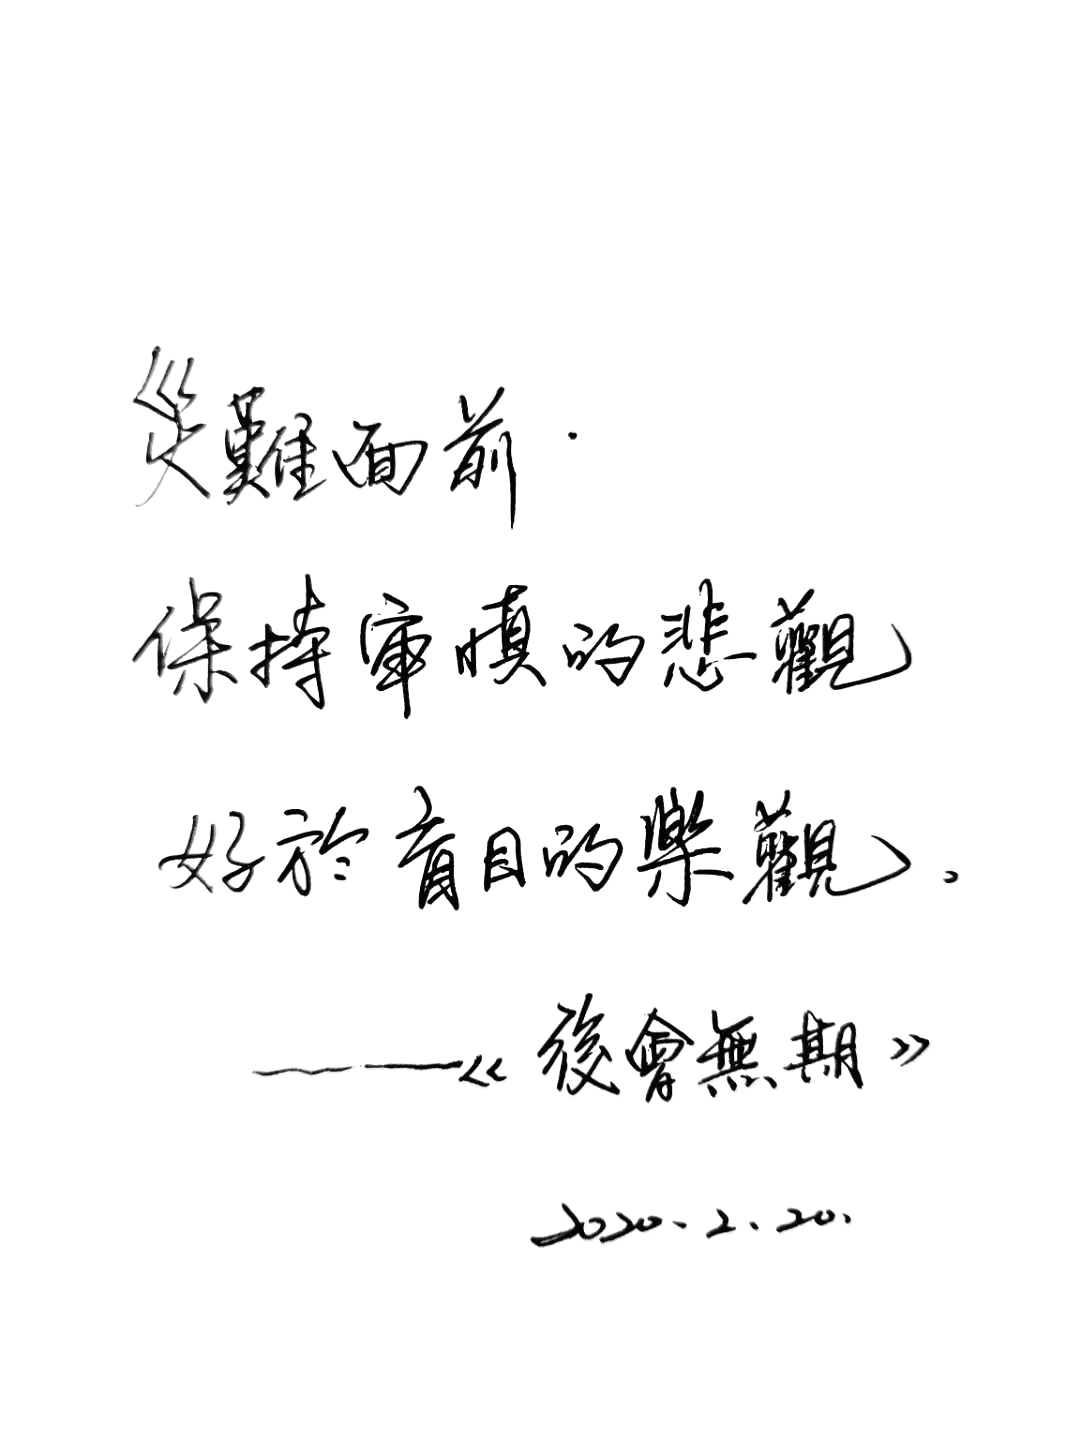 災難面前.
保持審慎的悲觀
好於盲目的樂觀。
——《後會無期》
2020.2.20.